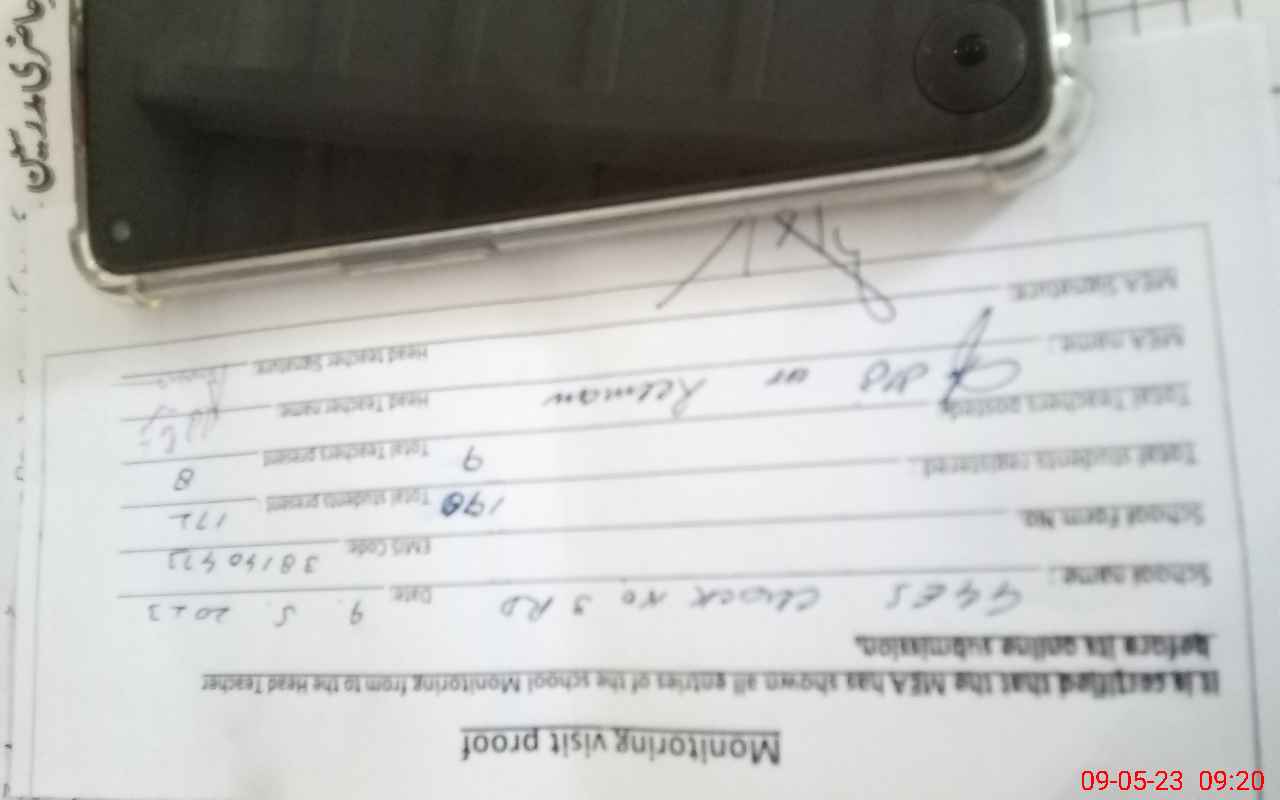 Monitoring visit proof
It is certified that the MEA has shown all entries of the school Monitoring from to the Head Teacher
before its online submission.
School name: GGES Chack No. 3 RD Date: 9. 5. 2023
School Form No. EMIS Code:
Total students registered: 190 Total students present: 172
Total Teachers posted: 9 Total Teachers present: 8
MEA name: ur Rehman Head Teacher name:
MEA Signature: Head teacher Signature:
حاضری مدرسین
09-05-23 09:20